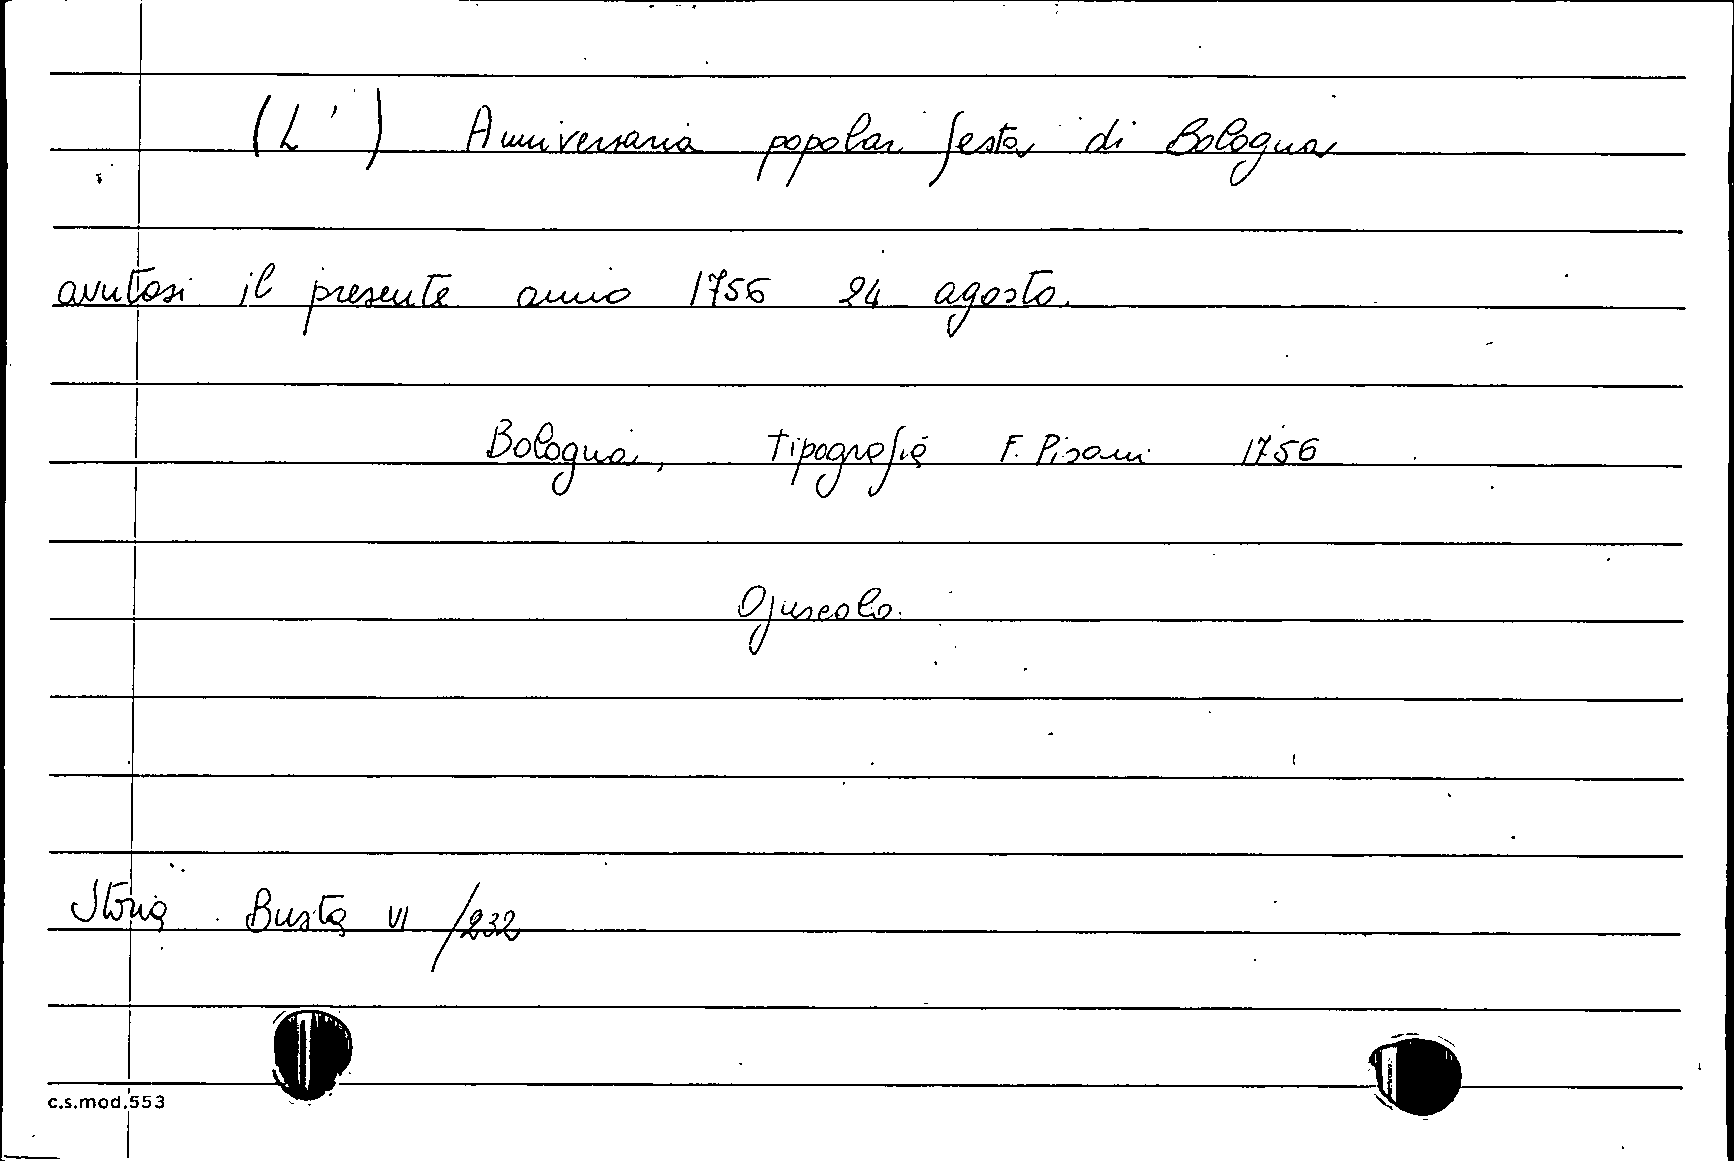 (L') Anniversaria popolar festa di Bologna
avutasi il presente anno 1756 24 agosto.
Bologna, tipografia F. Pisani 1756
Opuscolo.
Storia Busta VI /232
c.s.mod.553